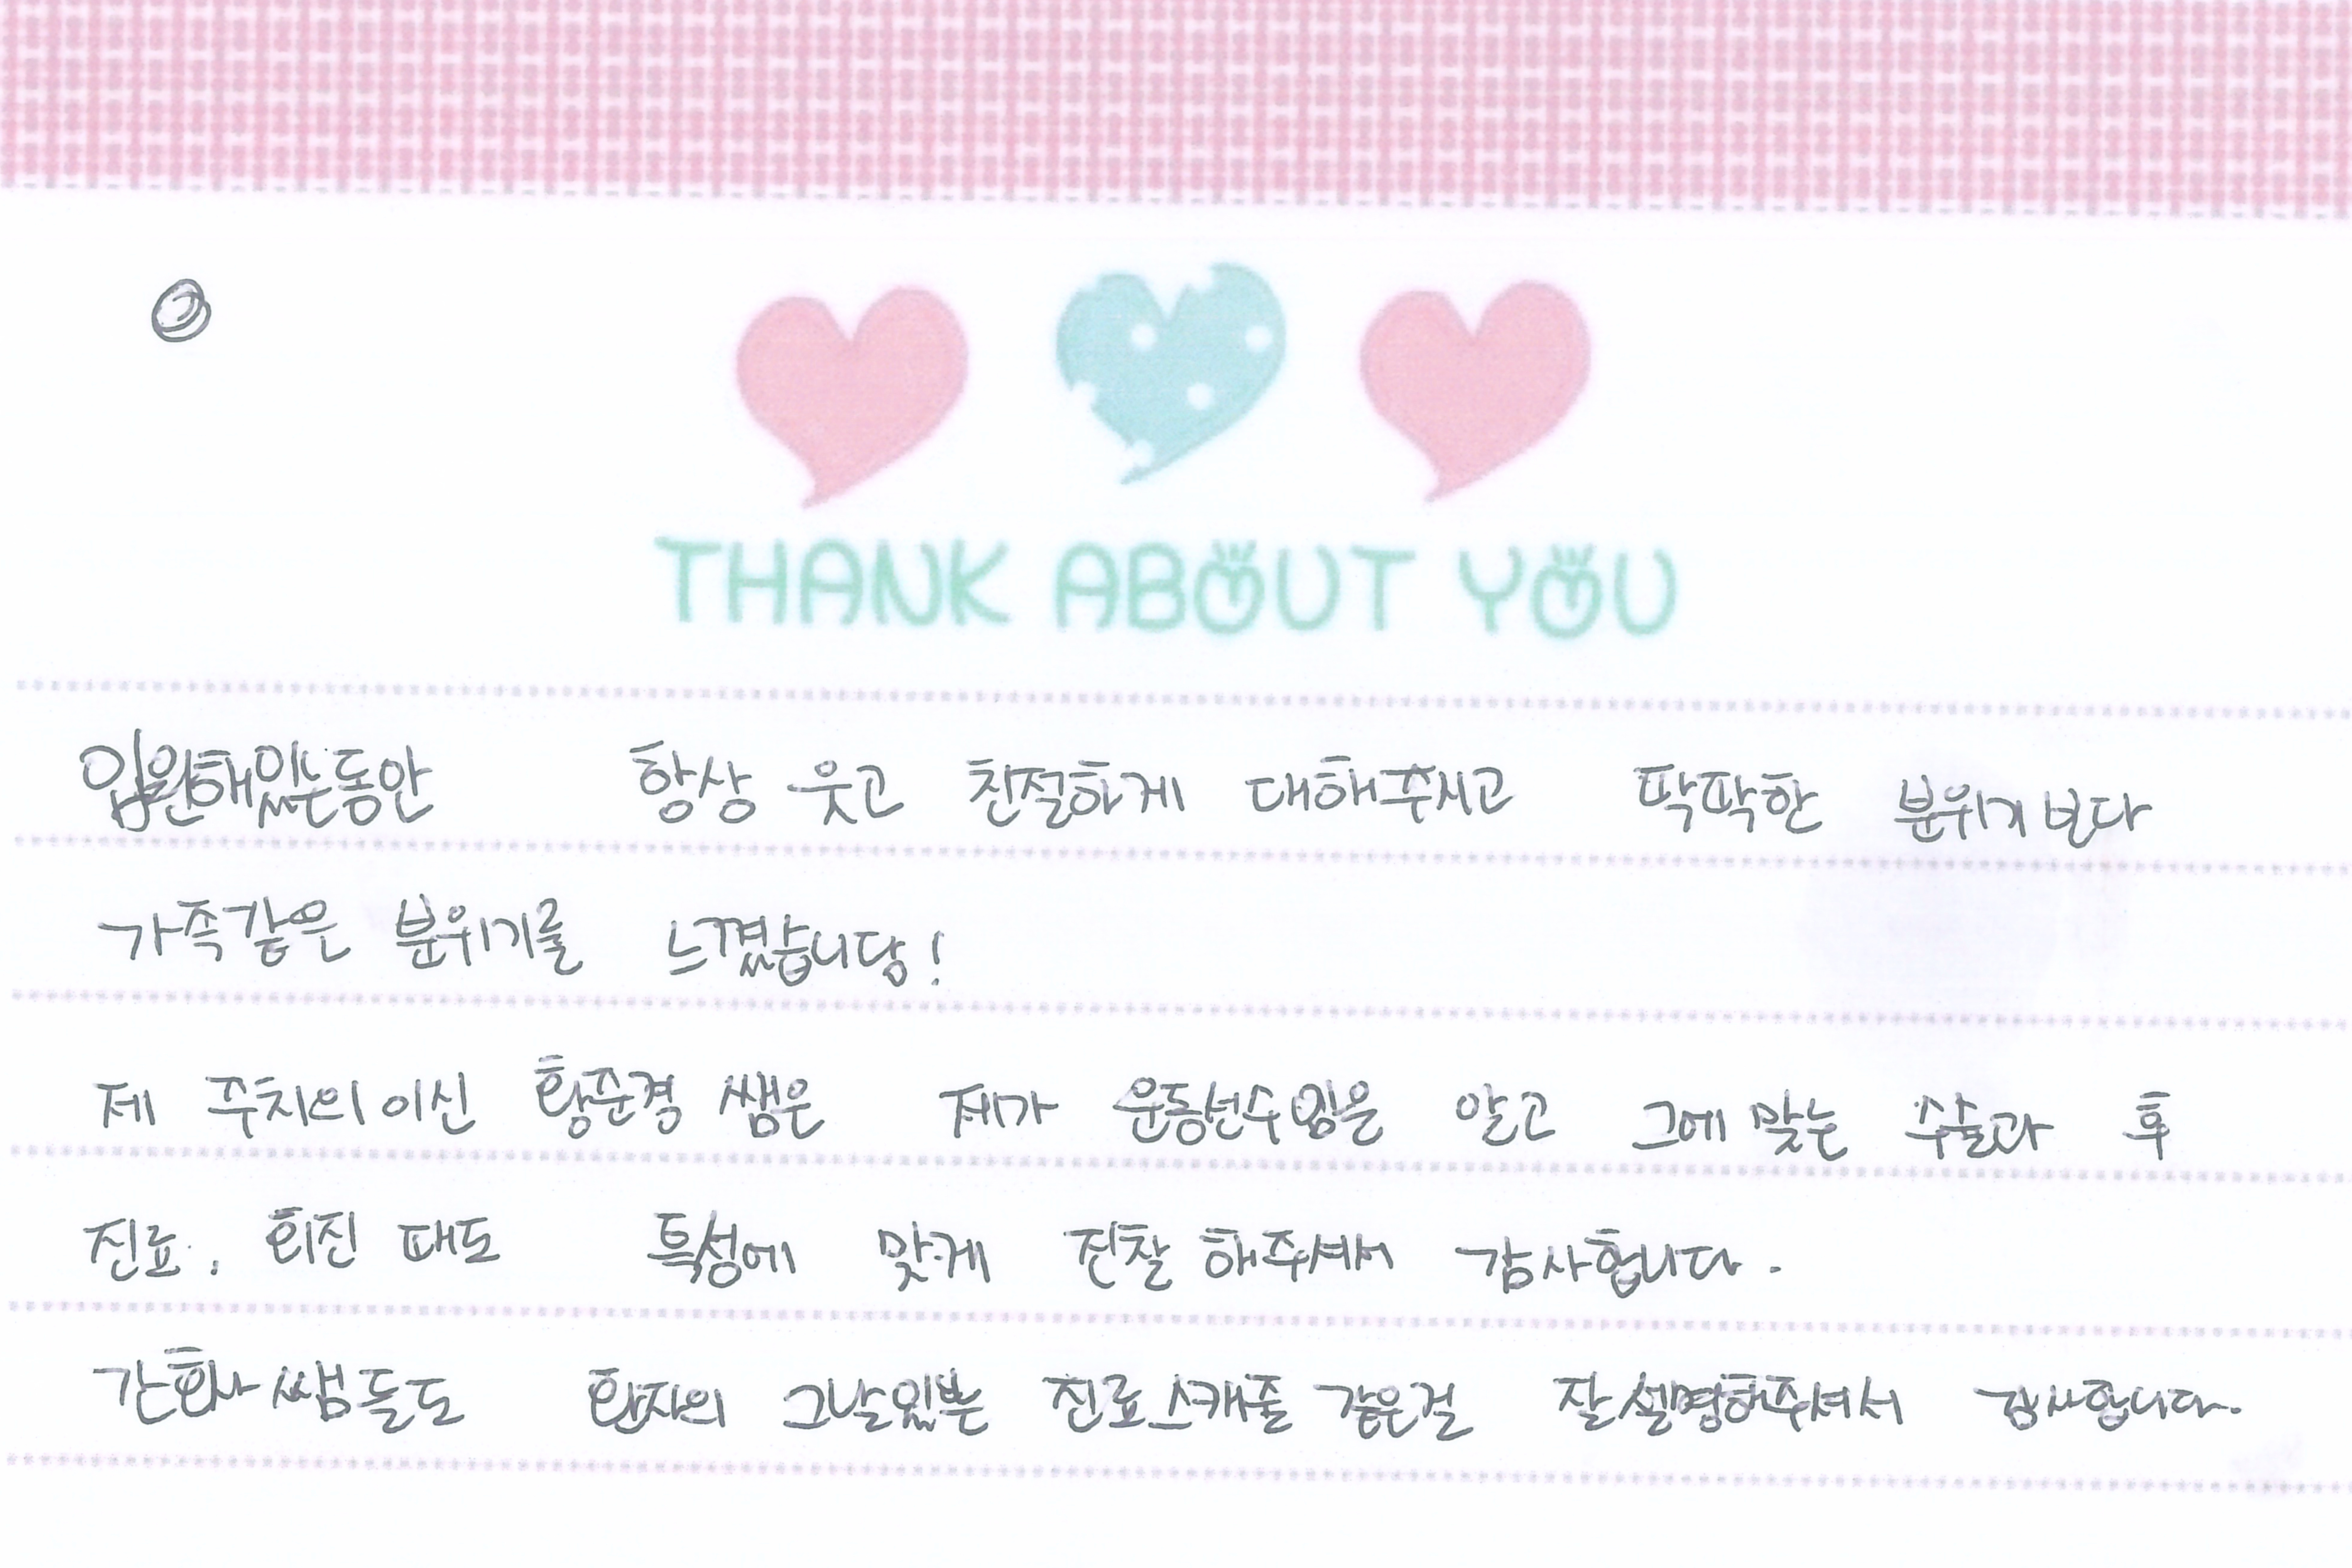 THANK ABOUT YOU
입원해있는동안 항상 웃고 친절하게 대해주시고 딱딱한 분위기보다
가족같은 분위기를 느꼈습니당!
제 주치의이신 황준경 쌤은 제가 운동선수임을 알고 그에 맞는 수술과 후
진료, 회진 때도 특성에 맞게 진찰 해주셔서 감사합니다.
간호사 쌤들도 환자의 그날일뿐 진료스캐줄 같은걸 잘 셀명해주셔서 감사합니다.